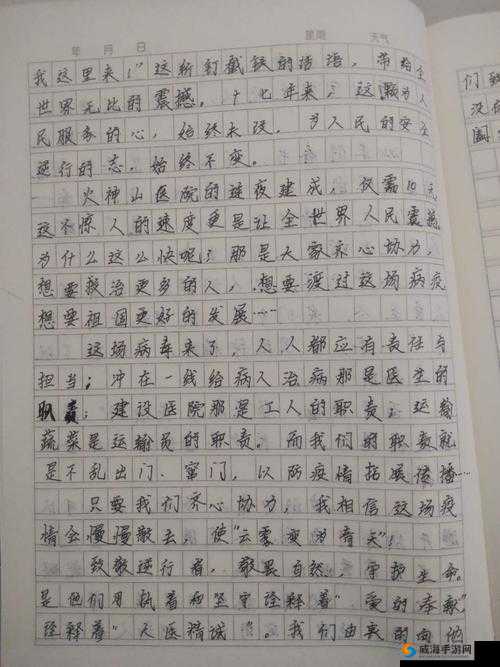 年 月 日 星期 天气
我这里来！”这斩钉截铁的话语，带给全
世界无比的震撼。十七年来，这颗为人
民服务的心，始终未改，为人民的安全
逆行的志，始终不变。
火神山医院的连夜建成，仅需10天
这个惊人的速度更是让全世界人民震撼
为什么这么快呢？那是大家齐心协力，
想要救治更多的人，想要渡过这场病疫
想要祖国更好的发展……
这场病毒来了，人人都应有责任与
担当；冲在一线给病人治病那是医生的
职责；建设医院那是工人的职责；运输
蔬菜是运输员的职责。而我们的职责就
是不乱出门、窜门，以防疫情拓展传播…
只要我们齐心协力，我相信这场疫
情会慢慢散去，使“云雾变为青天”！
致敬逆行者，敬畏自然，守护生命。
是他们用执着和坚守诠释着“爱的奉献”
诠释着“大医精诚”。我们由衷的向他
们致
没有
国
威海手游网